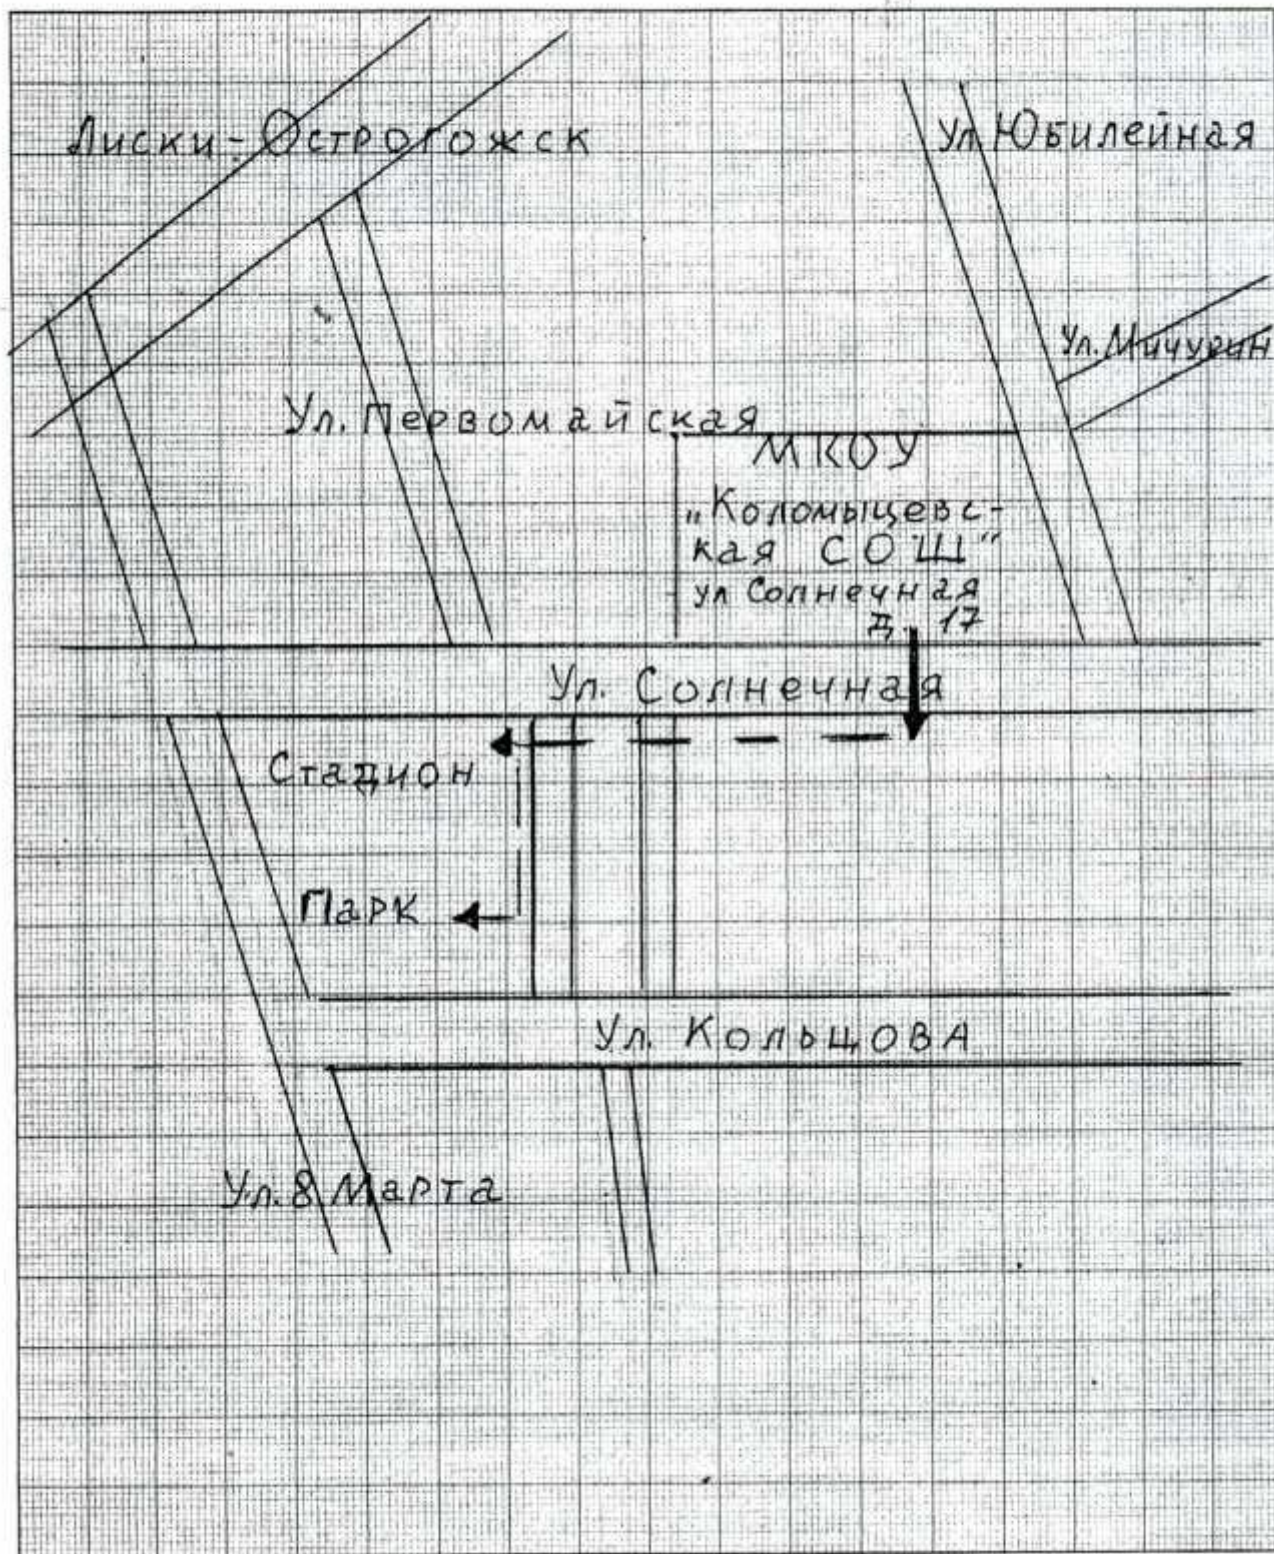 Лиски-Острогожск
Ул. Юбилейная
Ул. Мичурин
Ул. Первомайская
МКОУ
„Коломыцевс-
кая СОШ"
ул Солнечная
д. 17
Ул. Солнечная
Стадион
Парк
Ул. Кольцова
Ул. 8 Марта